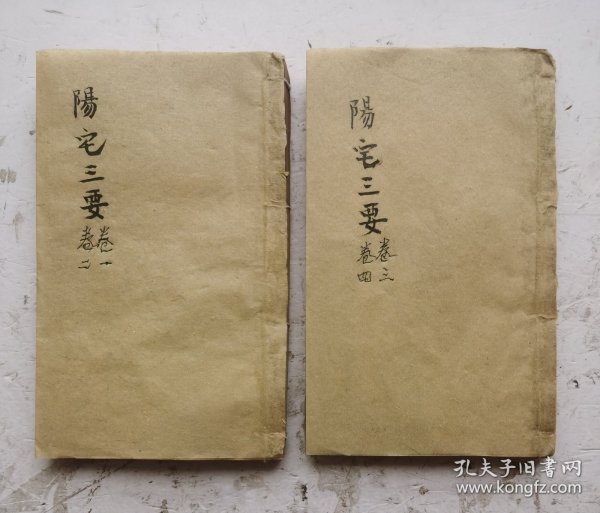 陽宅三要
卷一
卷二
陽宅三要
卷三
卷四
孔夫子旧书网
www.kongfz.com